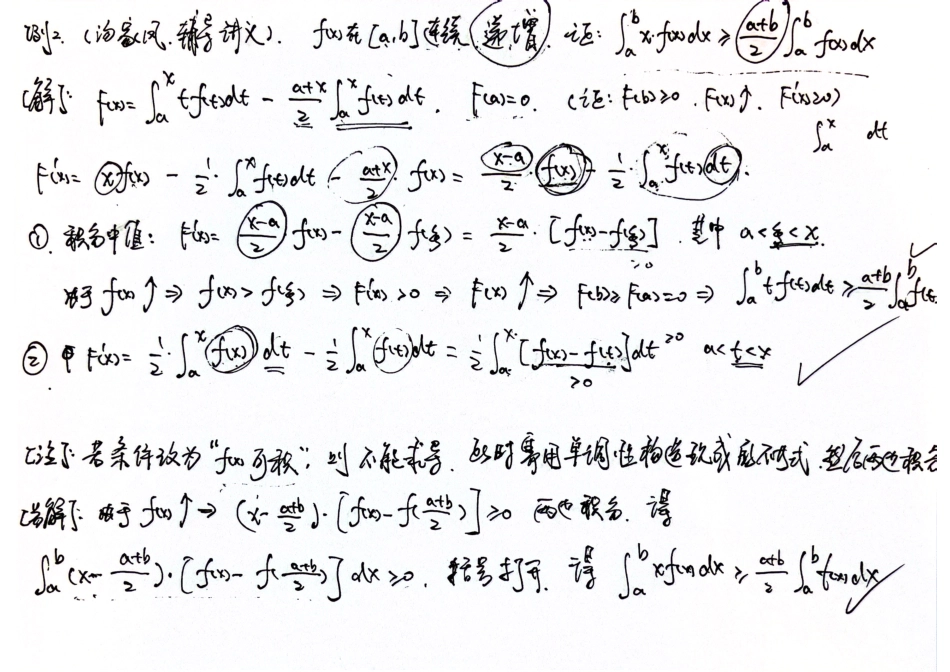 例2. (汤家凤.辅导讲义). f(x)在[a,b]连续 递增. 证: ∫_a^b x·f(x)dx ≥ (a+b)/2 ∫_a^b f(x)dx
[解]: F(x)=∫_a^x t·f(t)dt - (a+x)/2 ∫_a^x f(t)dt. F(a)=0. (证: F(b)≥0. F(x)↑. F'(x)≥0)
∫_a^x dt
F'(x)= x f(x) - 1/2·∫_a^x f(t)dt - (a+x)/2·f(x) = (x-a)/2·f(x) - 1/2·∫_a^x f(t)dt.
① 积分中值: F'(x)= (x-a)/2 f(x) - (x-a)/2 f(ξ) = (x-a)/2·[f(x)-f(ξ)] ≥0. 其中 a<ξ<x.
由于 f(x)↑ ⇒ f(x)>f(ξ) ⇒ F'(x)>0 ⇒ F(x)↑ ⇒ F(b)≥F(a)=0 ⇒ ∫_a^b t·f(t)dt ≥ (a+b)/2 ∫_a^b f(t
② 由 F'(x)= 1/2·∫_a^x f(x)dt - 1/2∫_a^x f(t)dt = 1/2∫_a^x [f(x)-f(t)]dt >0 a<t<x
>0
[注]: 若条件改为"f(x)可积", 则不能求导. 此时需用单调性构造现成不等式. 然后两边积分
[解]: 由于 f(x)↑ → (x-(a+b)/2)·[f(x)-f((a+b)/2)]≥0 两边积分. 得
∫_a^b (x-(a+b)/2)·[f(x)-f((a+b)/2)]dx ≥0. 括号打开. 得 ∫_a^b xf(x)dx ≥ (a+b)/2 ∫_a^b f(x)dx